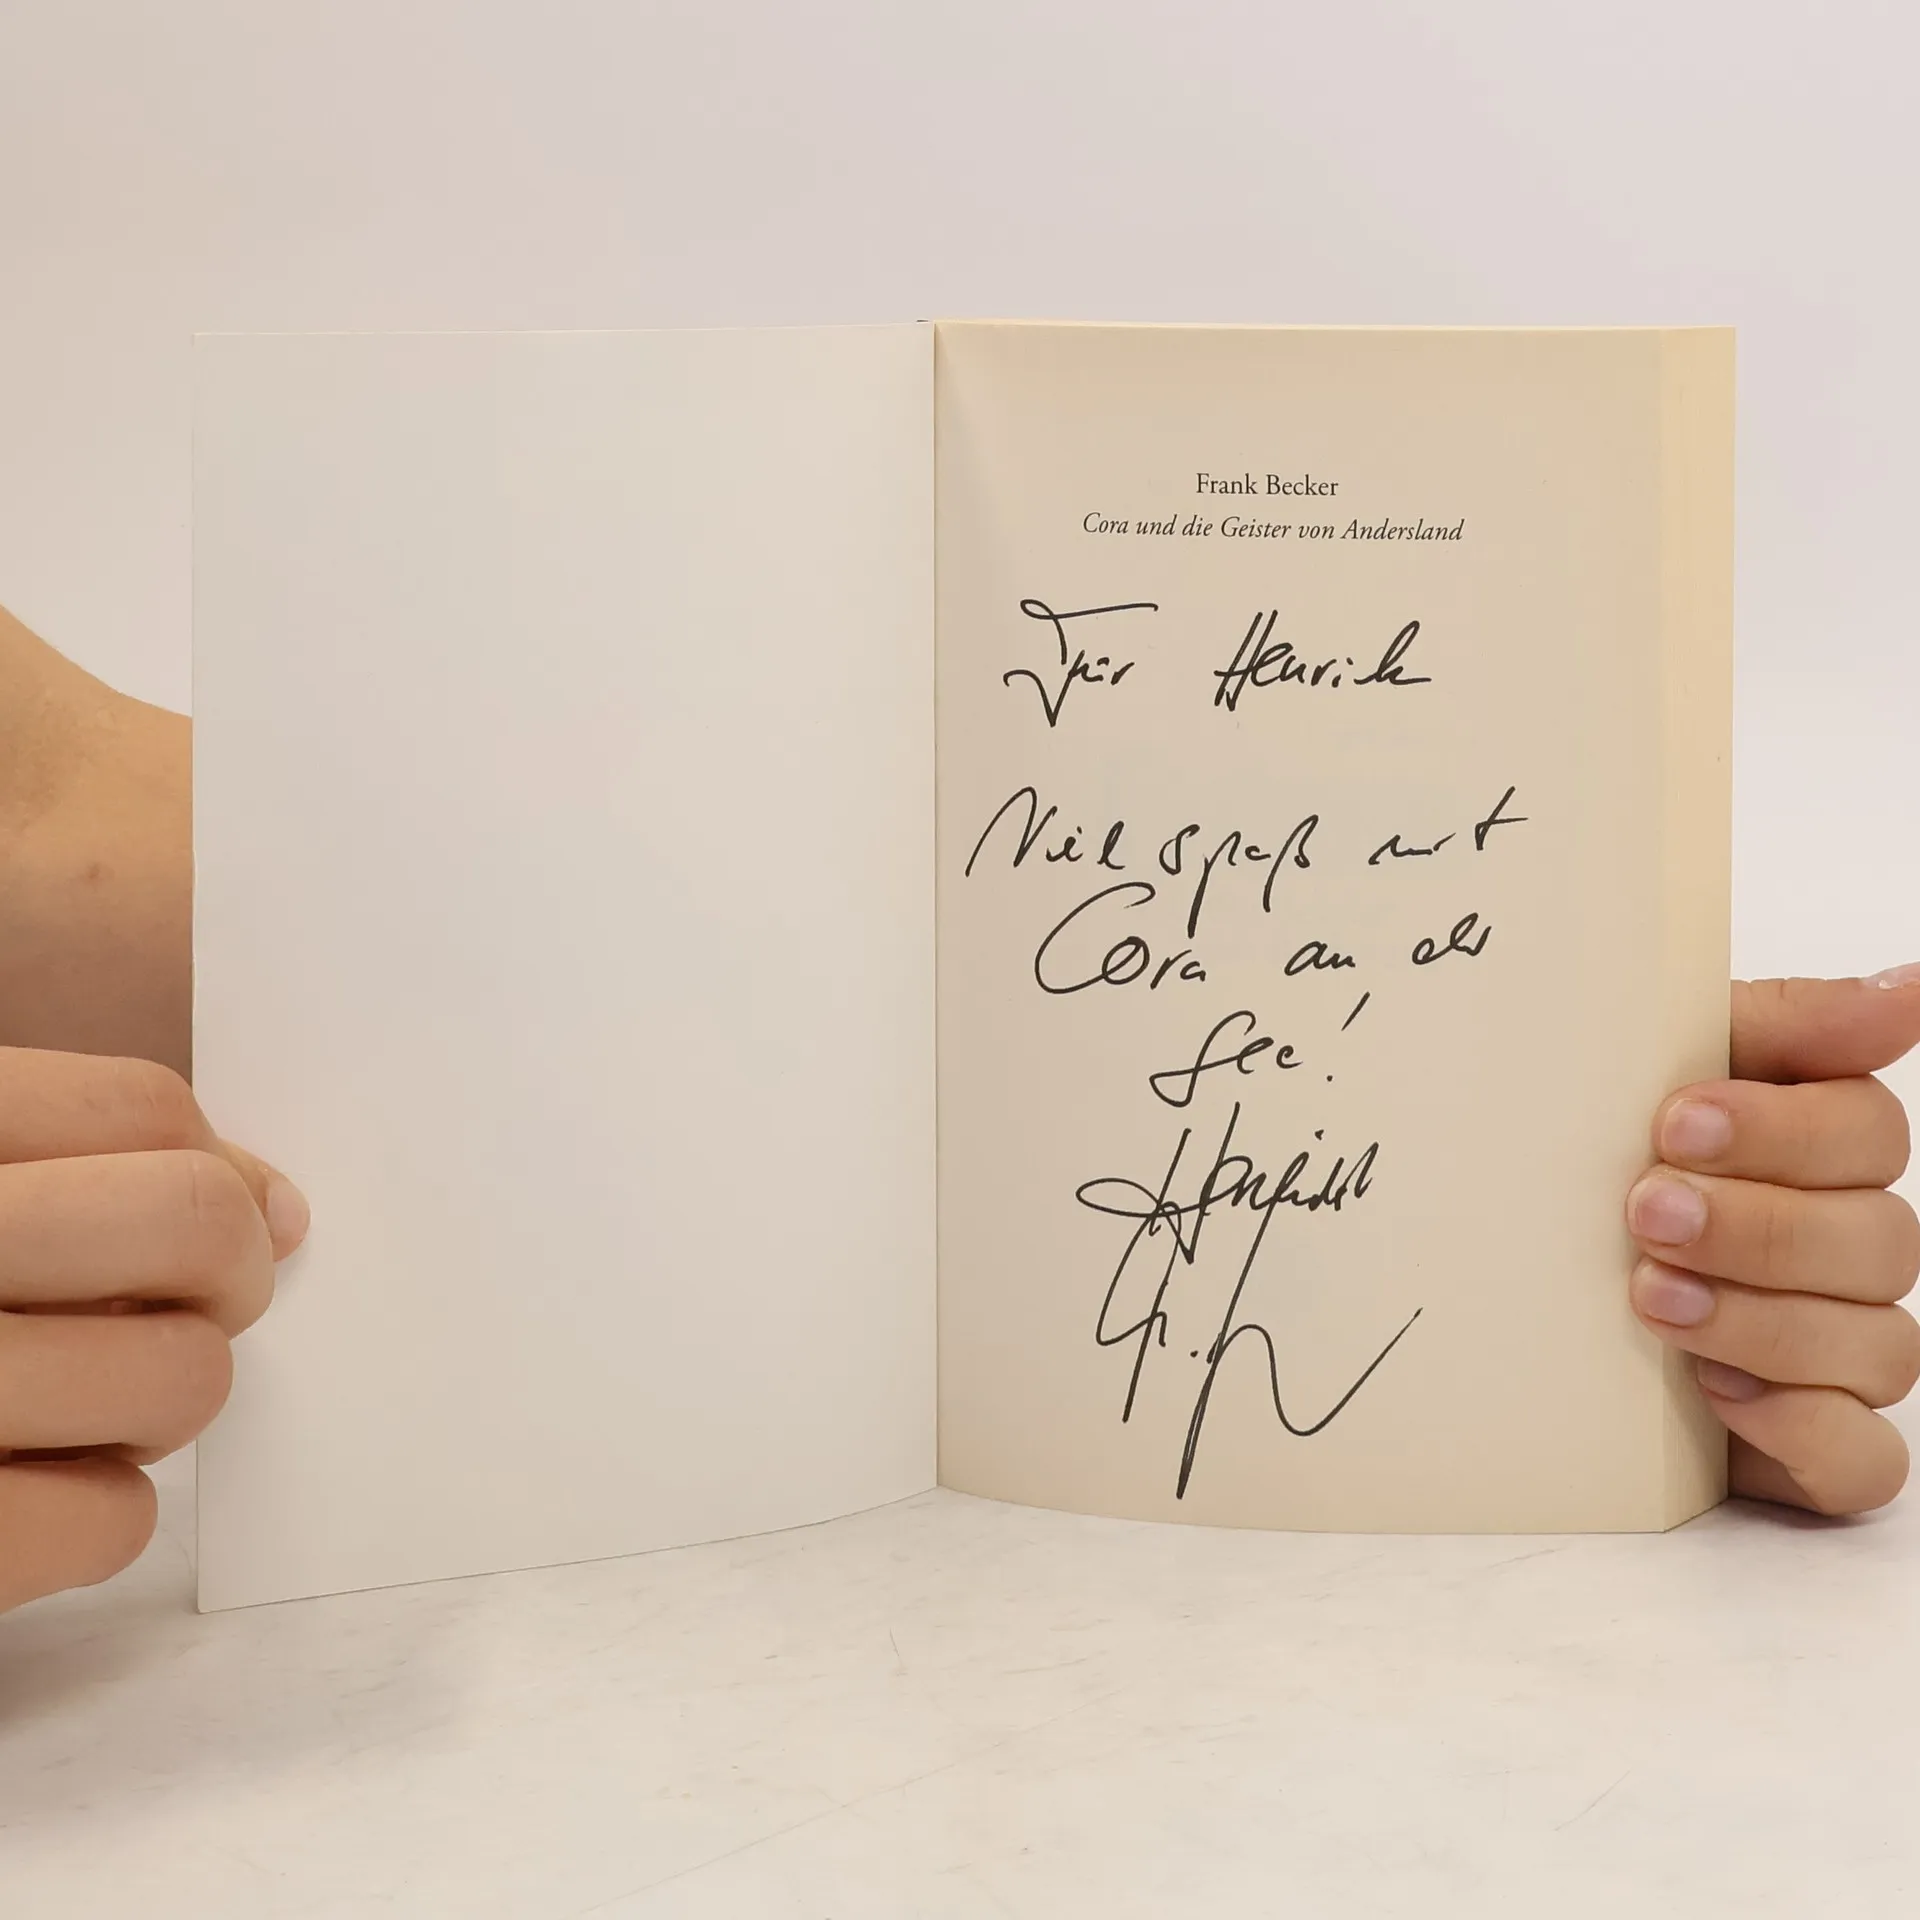 Frank Becker
Cora und die Geister von Andersland
Für Henrik
Viel Spaß mit
Cora an der
See!
Herzlichst